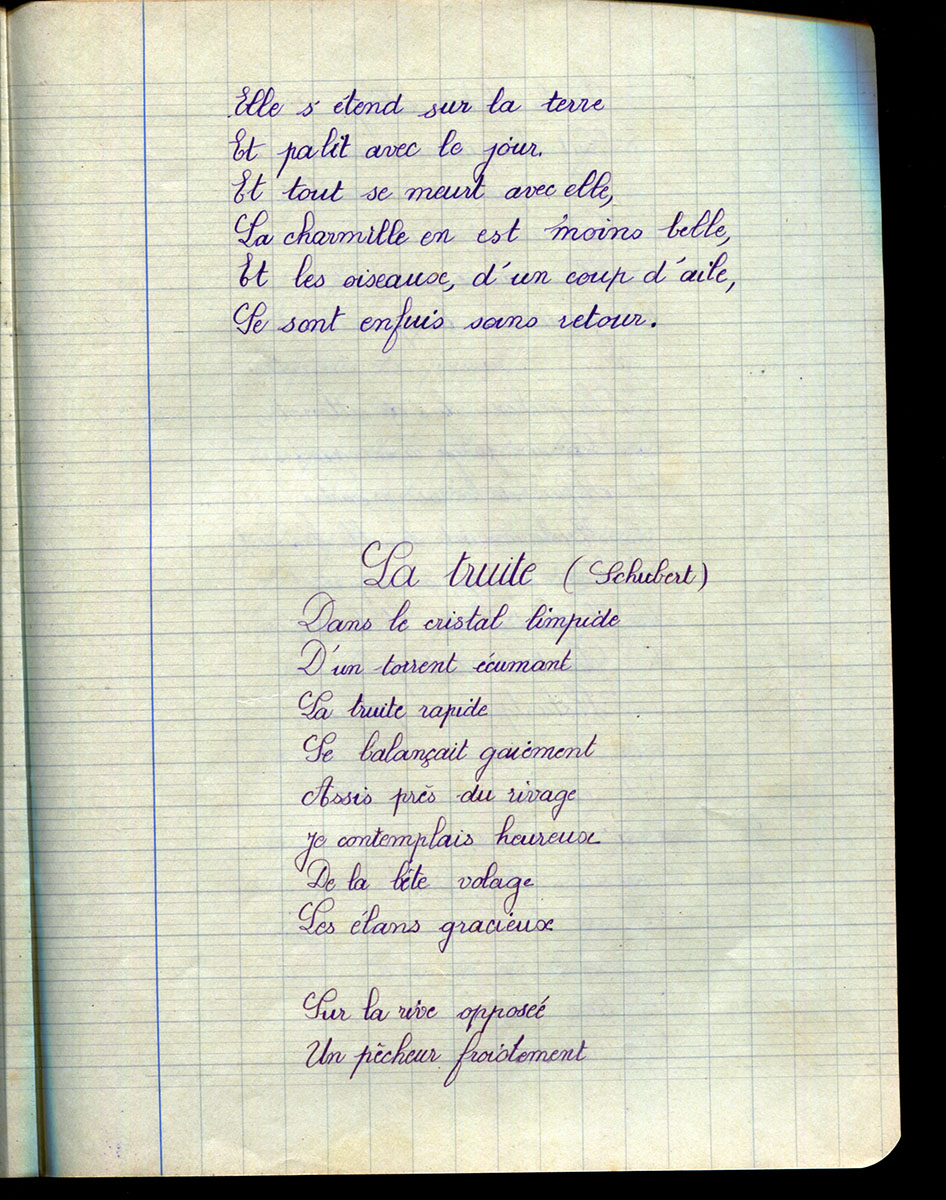 Elle s'étend sur la terre
Et palit avec le jour.
Et tout se meurt avec elle,
La charmille en est moins belle,
Et les oiseaux, d'un coup d'aile,
Se sont enfuis sans retour.
La truite (Schubert)
Dans le cristal limpide
D'un torrent écumant
La truite rapide
Se balançait gaiement
Assis près du rivage
Je contemplais heureux
De la bête volage
Les élans gracieux
Sur la rive opposeé
Un pêcheur froidement